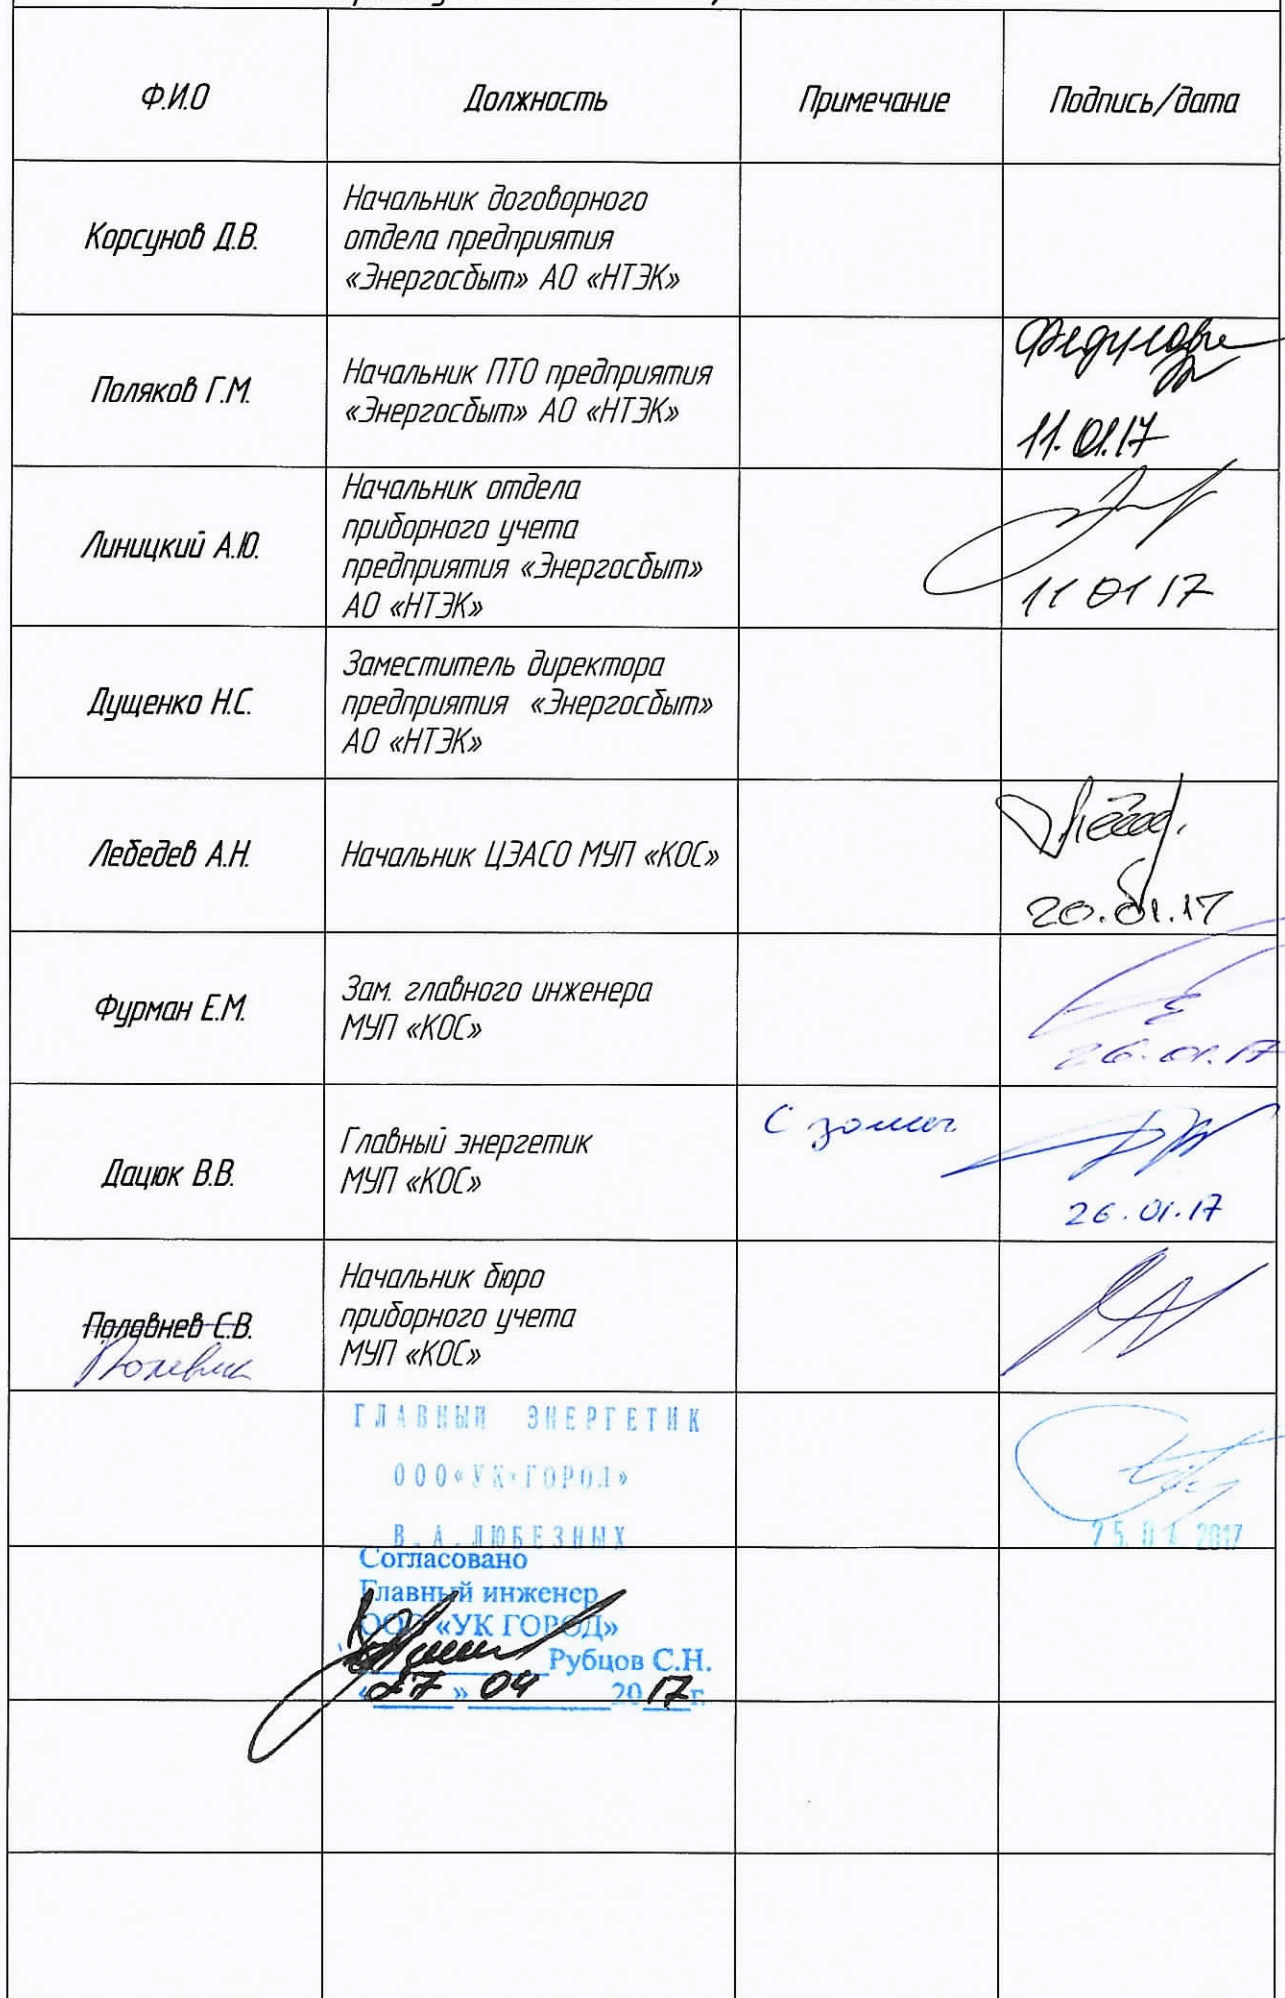 Ф.И.О
Должность
Примечание
Подпись/дата
Корсунов Д.В.
Начальник договорного
отдела предприятия
«Энергосбыт» АО «НТЭК»
Поляков Г.М.
Начальник ПТО предприятия
«Энергосбыт» АО «НТЭК»
11.01.17
Линицкий А.Ю.
Начальник отдела
приборного учета
предприятия «Энергосбыт»
АО «НТЭК»
11 01 17
Дущенко Н.С.
Заместитель директора
предприятия «Энергосбыт»
АО «НТЭК»
Лебедев А.Н.
Начальник ЦЭАСО МУП «КОС»
20.01.17
Фурман Е.М.
Зам. главного инженера
МУП «КОС»
26.01.17
Дацюк В.В.
Главный энергетик
МУП «КОС»
С
26.01.17
Полавнев С.В.
Начальник бюро
приборного учета
МУП «КОС»
ГЛАВНЫЙ ЭНЕРГЕТИК
ООО«УК«ГОРОД»
В.А.ЛЮБЕЗНЫХ
2017
Согласовано
Главный инженер
ООО «УК ГОРОД»
Рубцов С.Н.
«27» 04 2017г.